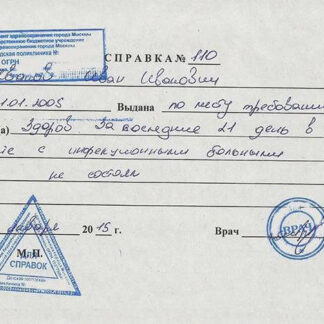 ент здравоохранения города Москвы
дарственное бюджетное учреждение
равоохранения города Москвы
одская поликлиника №
ОГРН
СПРАВКА № 110
Иванов Иван Иванович
.01.2005 Выдана по месту требования
а) Здоров За последние 21 день в
те с инфекционными больными
не состоял
января 20 15 г. Врач
ВРАЧ
М.П.
ДЛЯ
СПРАВОК